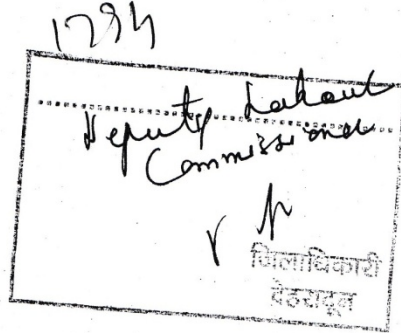 Deputy Labour
Commissioner
जिलाधिकारी
देहरादून